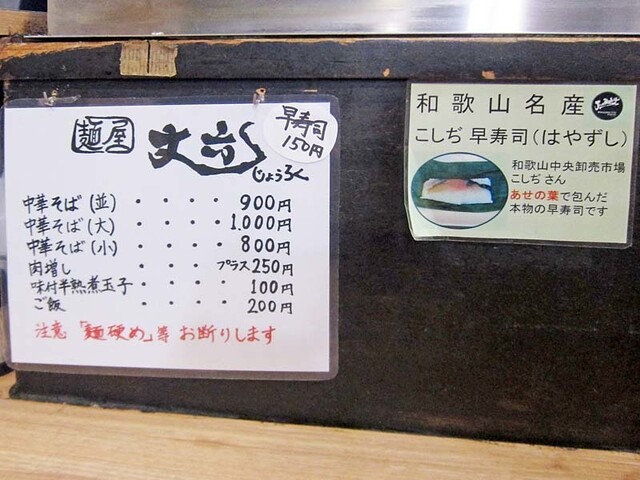 麺屋 丈六
じょうろく
早寿司
150円
中華そば(並)・・・・・900円
中華そば(大)・・・・・1.000円
中華そば(小)・・・・・800円
肉増し・・・・プラス250円
味付半熟煮玉子・・・・100円
ご飯・・・・200円
注意「麺硬め」等 お断りします
和歌山名産
こしぢ 早寿司(はやずし)
和歌山中央卸売市場
こしぢ さん
あせの葉で包んだ
本物の早寿司です